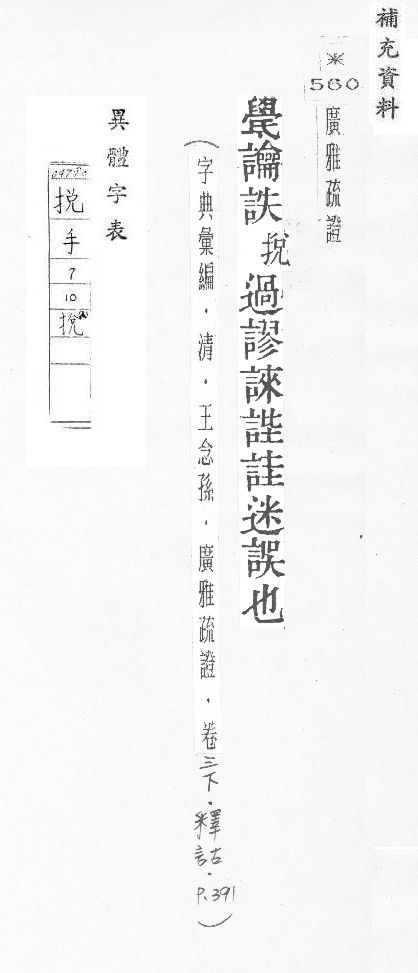 補充資料
※
560
廣雅疏證
詄挩過謬誺詿迷誤也
(字典彙編.清.王念孫.廣雅疏證.卷三下.釋詁.P.391)
異體字表
挩
手
7
10
挩